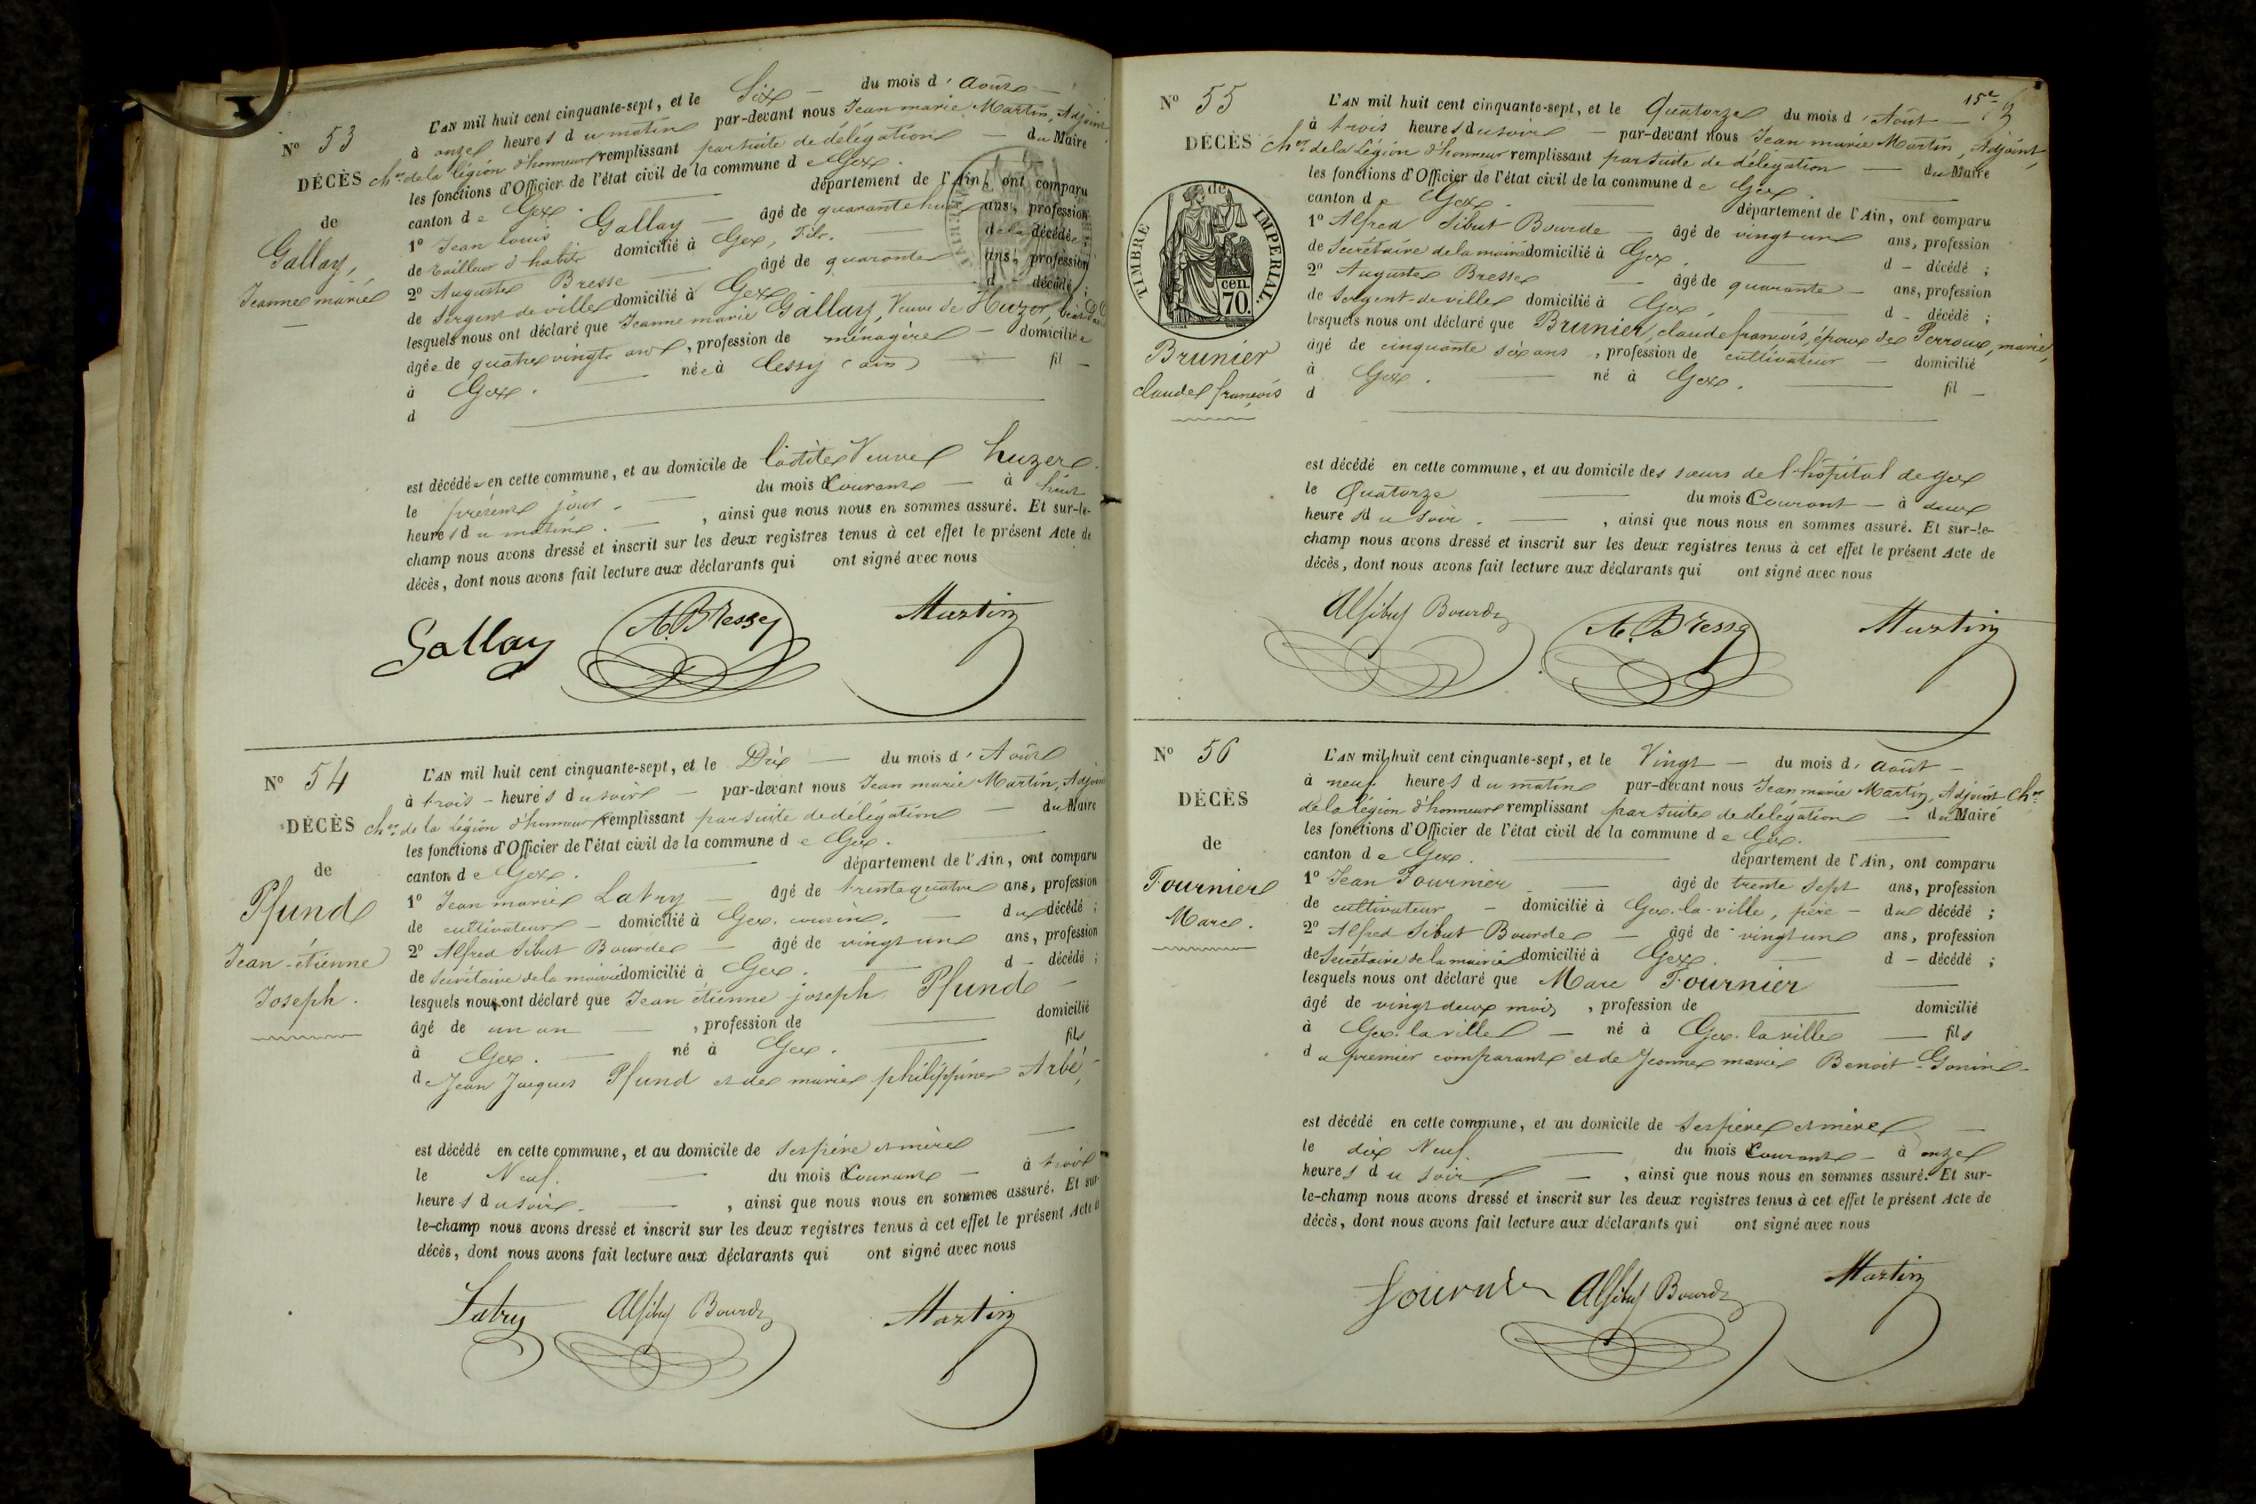 N° 53
DÉCÈS
de
Gallay,
Jeanne marie
L'AN mil huit cent cinquante-sept, et le Six du mois d'Août
à onze heures du matin par-devant nous Jean marie Martin, Adjoint
chr. de la légion d'honneur remplissant par suite de délégation du Maire
les fonctions d'Officier de l'état civil de la commune de Gex.
canton de Gex. département de l'Ain, ont comparu
1° Jean louis Gallay âgé de quarante huit ans, profession
de tailleur d'habits domicilié à Gex, fils. de la décédée;
2° Auguste Bresse âgé de quarante ans, profession
de Sergent de ville domicilié à Gex d décédé;
lesquels nous ont déclaré que Jeanne marie Gallay, Veuve de Huzer,
âgée de quatre vingts ans, profession de ménagère domiciliée
à Gex. née à Cessy (ain) fil
d
est décédée en cette commune, et au domicile de laditte Veuve huzer.
le présent jour. du mois Courant à huit
heures du matin. , ainsi que nous nous en sommes assuré. Et sur-le-
champ nous avons dressé et inscrit sur les deux registres tenus à cet effet le présent Acte de
décès, dont nous avons fait lecture aux déclarants qui ont signé avec nous
Gallay A. Bresse Martin
N° 54
DÉCÈS
de
Pfund
Jean-étienne
Joseph.
L'AN mil huit cent cinquante-sept, et le Dix du mois d'Août
à trois heures du soir par-devant nous Jean marie Martin, Adjoint
chr. de la Légion d'honneur remplissant par suite de délégation du Maire
les fonctions d'Officier de l'état civil de la commune de Gex.
canton de Gex. département de l'Ain, ont comparu
1° Jean marie Latry âgé de trente quatre ans, profession
de cultivateur domicilié à Gex. cousin. du décédé;
2° Alfred Sibut Bourde âgé de vingt un ans, profession
de Secrétaire de la mairie domicilié à Gex. d décédé;
lesquels nous ont déclaré que Jean étienne joseph Pfund
âgé de un an , profession de domicilié
à Gex. né à Gex. fils
de Jean Jacques Pfund et de marie philippine Arbé,
est décédé en cette commune, et au domicile de ses père et mère
le Neuf. du mois Courant à trois
heures du soir. , ainsi que nous nous en sommes assuré. Et sur-
le-champ nous avons dressé et inscrit sur les deux registres tenus à cet effet le présent Acte de
décès, dont nous avons fait lecture aux déclarants qui ont signé avec nous
Latry Alf Sibut Bourde Martin
15e
N° 55
DÉCÈS
TIMBRE IMPERIAL.
de
cen. 70.
Brunier
claude françois
L'AN mil huit cent cinquante-sept, et le Quatorze du mois d'Août
à trois heures du soir par-devant nous Jean marie Martin, Adjoint,
chr. de la Légion d'honneur remplissant par suite de délégation du Maire
les fonctions d'Officier de l'état civil de la commune de Gex.
canton de Gex. département de l'Ain, ont comparu
1° Alfred Sibut Bourde âgé de vingt un ans, profession
de Secrétaire de la mairie domicilié à Gex. d décédé;
2° Auguste Bresse âgé de quarante ans, profession
de Sergent-de-ville domicilié à Gex, d décédé;
lesquels nous ont déclaré que Brunier, claude françois, époux de Perroux, marie,
âgé de cinquante six ans , profession de cultivateur domicilié
à Gex. né à Gex. fil
d
est décédé en cette commune, et au domicile des sœurs de l'hôpital de Gex
le Quatorze du mois Courant à deux
heures du soir. , ainsi que nous nous en sommes assuré. Et sur-le-
champ nous avons dressé et inscrit sur les deux registres tenus à cet effet le présent Acte de
décès, dont nous avons fait lecture aux déclarants qui ont signé avec nous
Alf Sibut Bourde A. Bresse Martin
N° 56
DÉCÈS
de
Fournier
Marc.
L'AN mil huit cent cinquante-sept, et le Vingt du mois d'août
à neuf heures du matin par-devant nous Jean marie Martin, Adjoint Chr.
de la légion d'honneur remplissant par suite de délégation du Maire
les fonctions d'Officier de l'état civil de la commune de Gex.
canton de Gex. département de l'Ain, ont comparu
1° Jean Fournier âgé de trente sept ans, profession
de cultivateur domicilié à Gex-la-ville, père du décédé;
2° Alfred Sibut Bourde âgé de vingt un ans, profession
de Secrétaire de la mairie domicilié à Gex. d décédé;
lesquels nous ont déclaré que Marc Fournier
âgé de vingt deux mois , profession de domicilié
à Gex-la ville né à Gex. la ville fils
du premier comparant et de Jeanne marie Benoit-Gonin
est décédé en cette commune, et au domicile de ses père et mère
le dix Neuf. du mois Courant à onze
heures du soir , ainsi que nous nous en sommes assuré. Et sur-
le-champ nous avons dressé et inscrit sur les deux registres tenus à cet effet le présent Acte de
décès, dont nous avons fait lecture aux déclarants qui ont signé avec nous
fournier Alf Sibut Bourde Martin